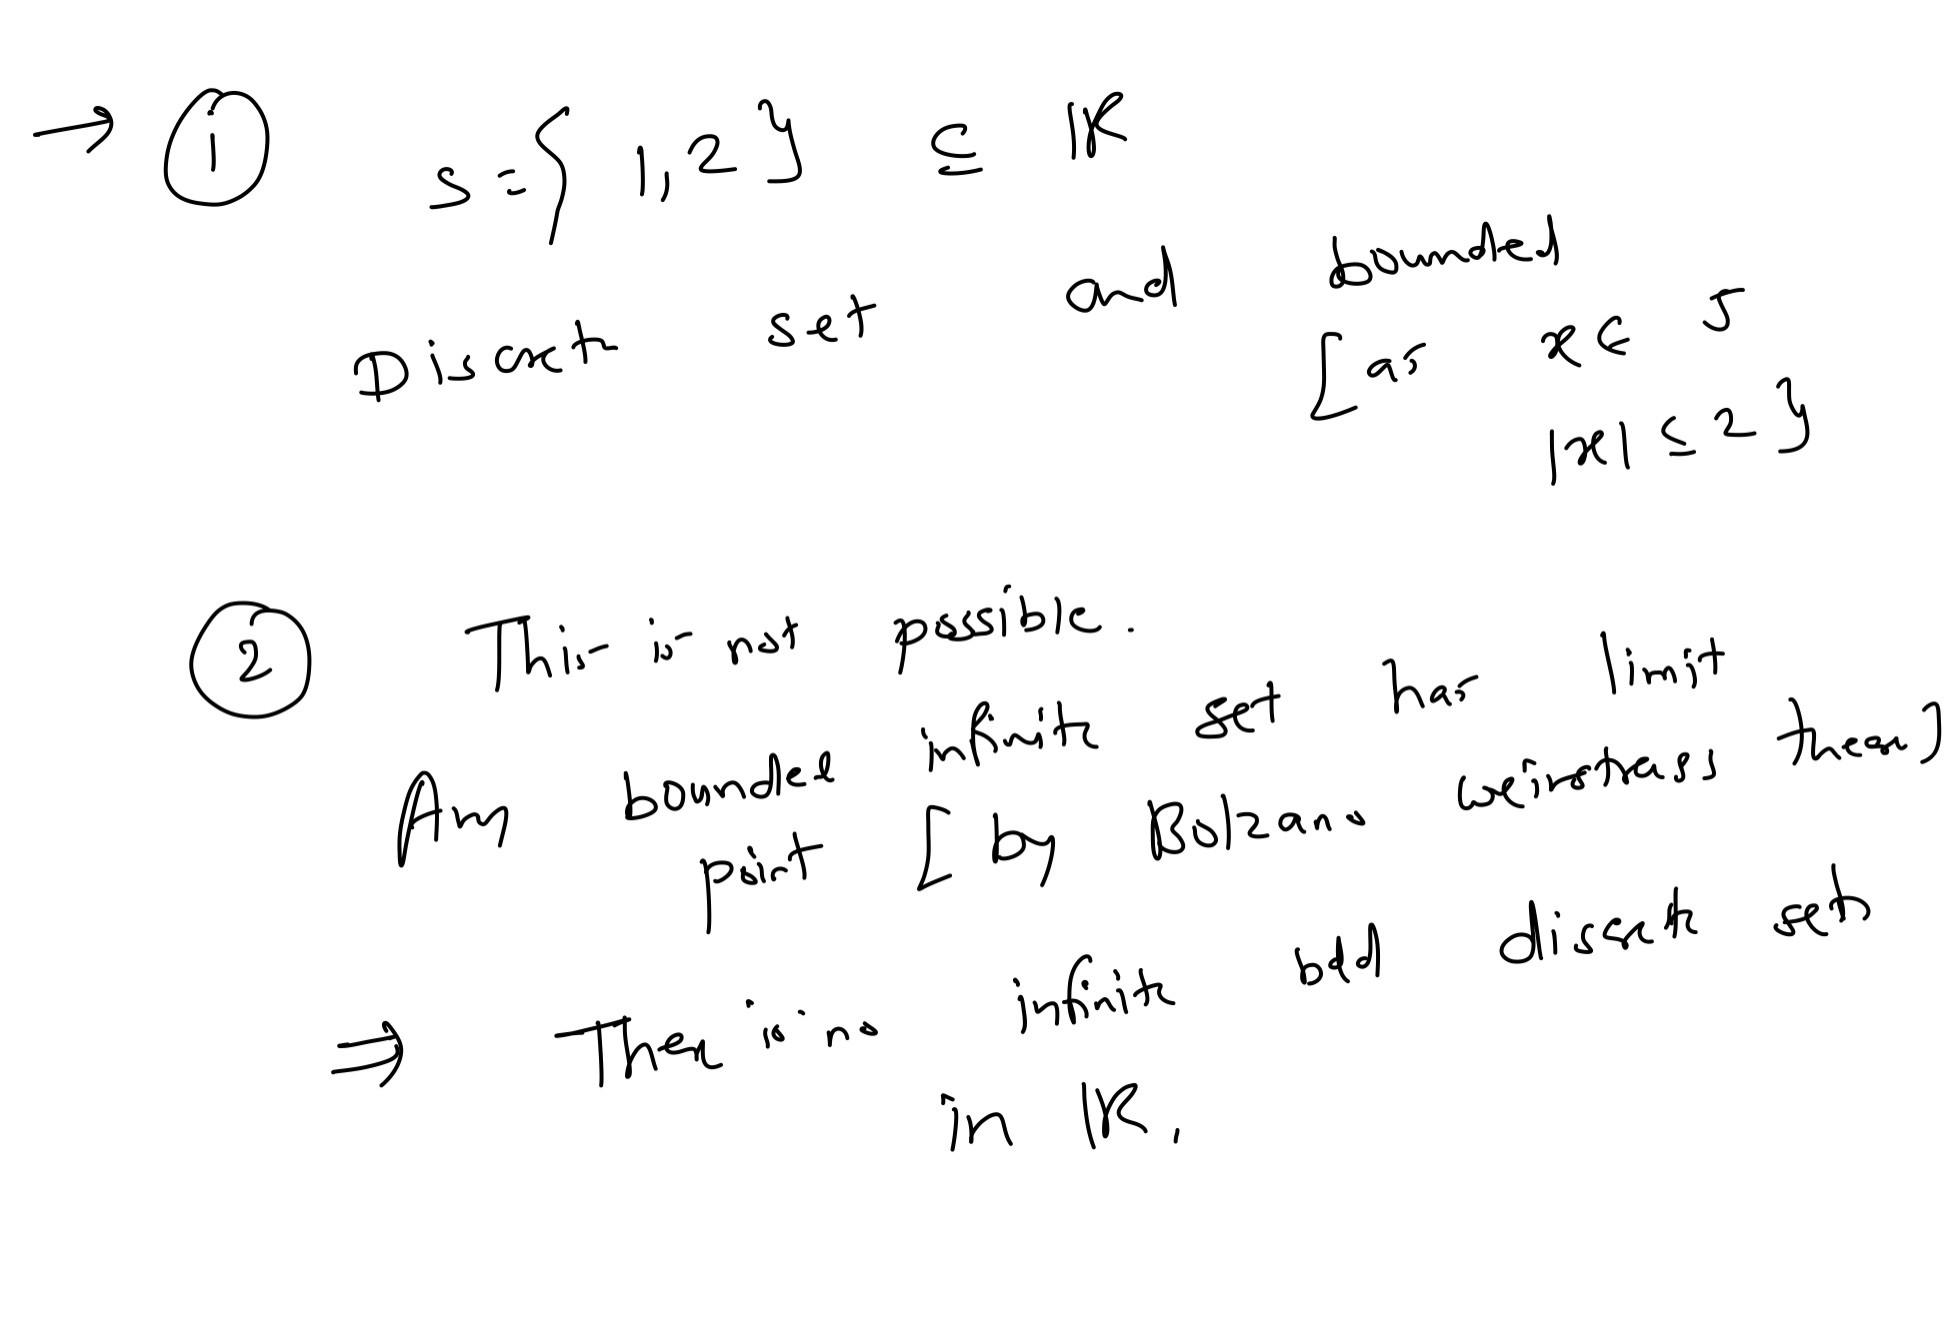 → ① S = { 1, 2 } ⊆ ℝ
Discrete set and bounded
[as x ∈ S
|x| ≤ 2 }
② This is not possible.
Any bounded infinite set has limit
point [ by Bolzano weirstrass theorem]
⇒ There is no infinite bdd discrete sets
in ℝ.